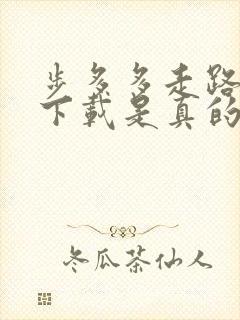 步多多走路
下载是真的
冬瓜茶仙人